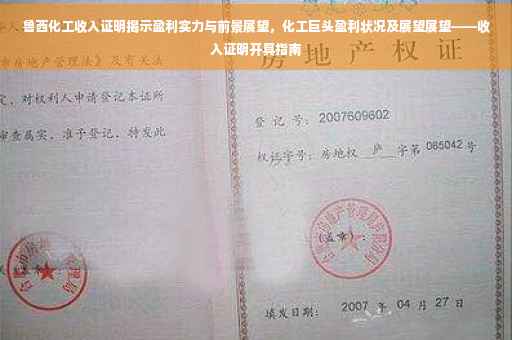 鲁西化工收入证明揭示盈利实力与前景展望，化工巨头盈利状况及展望展望——收
入证明开具指南
房地产权证
市房地产管理法》及有关法
定，对权利人申请登记本证所
审查属实，准予登记，特发此
登 记 号：2007609602
权证字号：房地权 庐 字第 085042 号
(盖章)：
填发日期： 2007 年 04 月 27 日